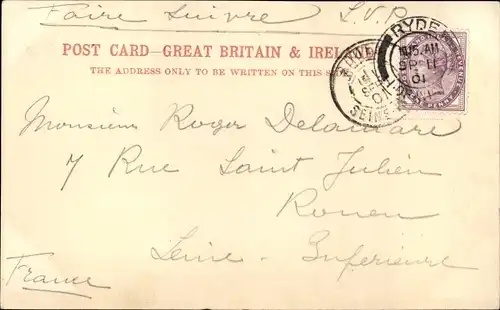 Faire Suivre S.V.P.
POST CARD—GREAT BRITAIN & IREL
THE ADDRESS ONLY TO BE WRITTEN ON THIS SI
RYDE
11.15 AM
SP 11
01
SEINE
Monsieur Roger Delamare
7 Rue Saint Julien
Rouen
Seine-Inférieure
France